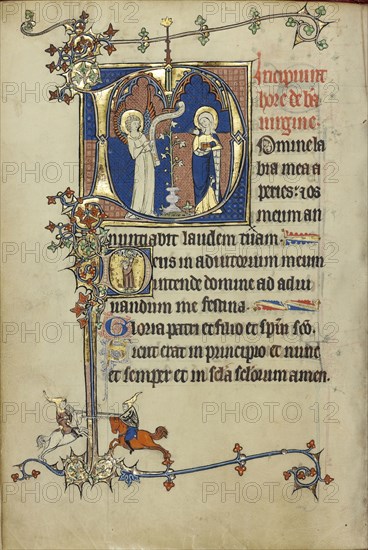 Incipiunt
hore de bea
uirgine
Domine la
bra mea a
peries: et os
meum an
nuntiabit laudem tuam.
Deus in adiutorium meum
intende domine ad adiu
uandum me festina.
Gloria patri et filio et spiritui sancto.
Sicut erat in principio et nunc
et semper et in secula seculorum amen.
PHOTO12